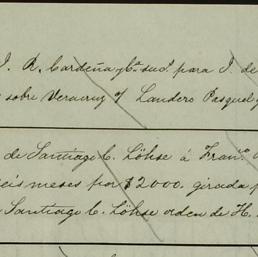 J. R. Cardeña y Ca. sucs. para J. de
sobre Veracruz o/ Landero Pasquel y
de Santiago C. Löhse á Franco.
seis meses por $2000. girada p
Santiago C. Löhse orden de H.